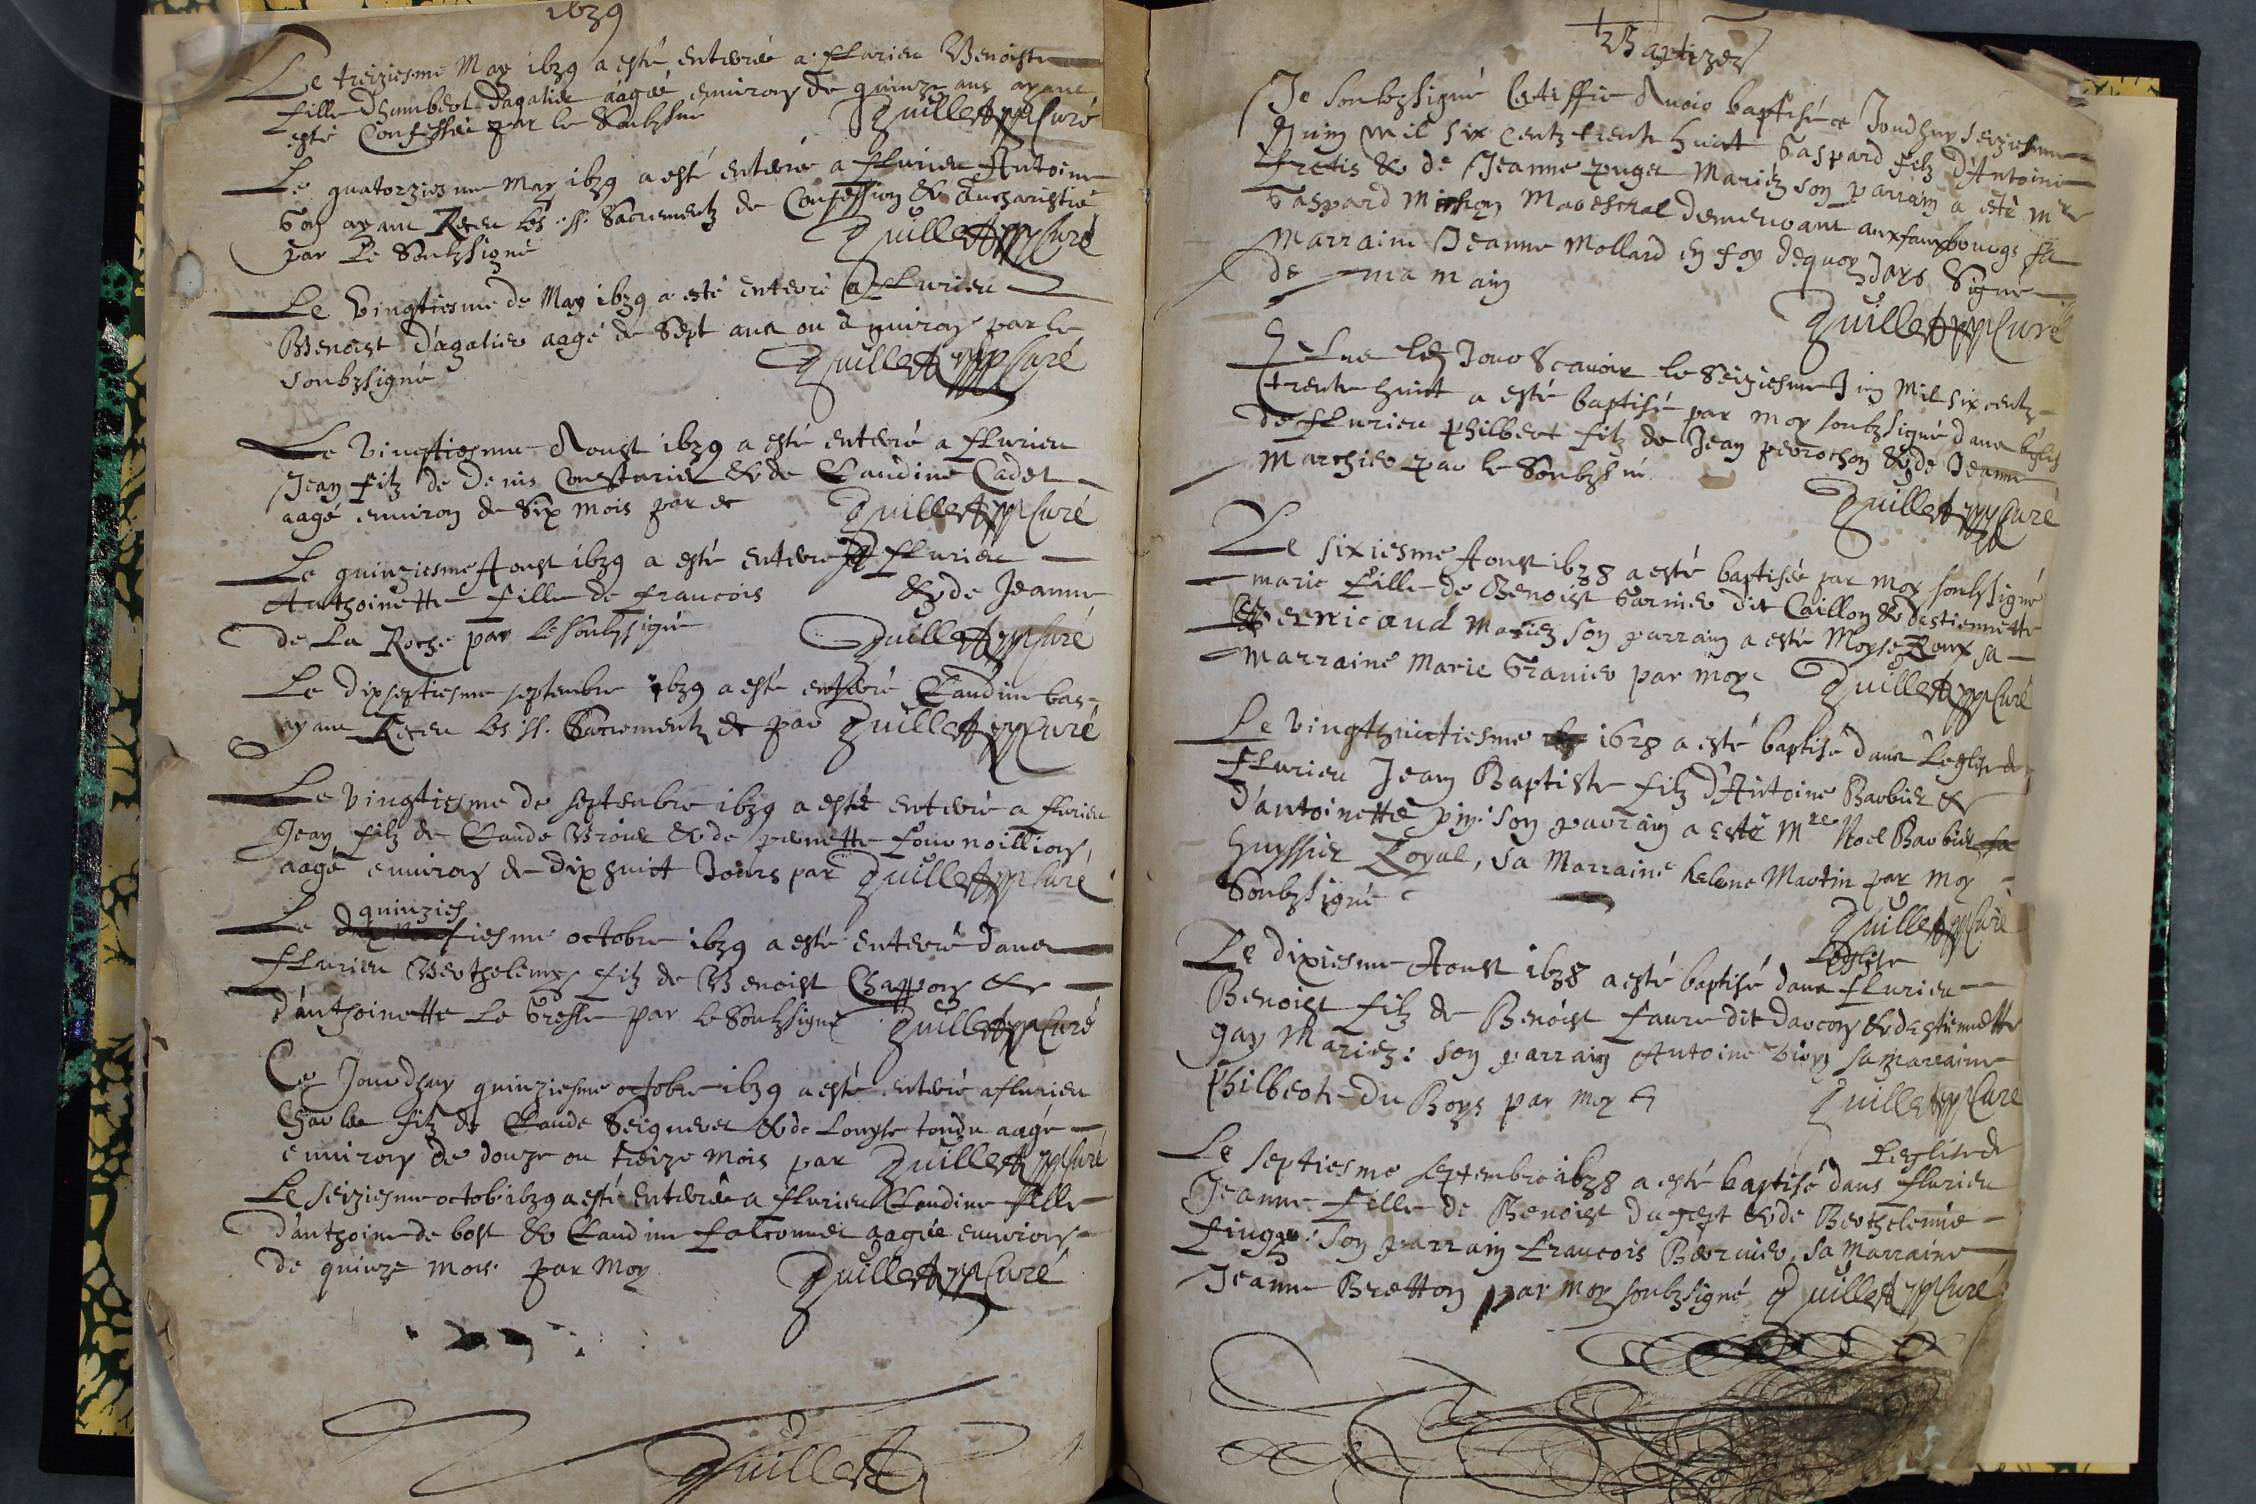 1639
Le treiziesme May 1639 a esté enterrée a Flurieu Benoiste
fille d'humbert Dagalier aagée environ de quinze ans ayant
esté Confessée par le Soubssné Quillet ppr Curé
Le quatorziesme May 1639 a esté enterré a Flurieu Antoine
Gon ayant Receu les .ss. Sacrementz de Confession & Eucharistie
par Le Soubzsigné Quillet ppr Curé
Le Vingtiesme de May 1639 a esté enterré a Flurieu
Benoist Dagalier aagé de Sept ans ou environ par le
soubzsigné Quillet ppr Curé
Le Vingtiesme Aoust 1639 a esté enterré a Flurieu
Jean filz de Denis & de Claudine Cadet
aagé environ de Six mois par Quillet ppr Curé
Le quinziesme Aoust 1639 a esté enterrée a Flurieu
Anthoinette fille de Francois & de Jeanne
De La Roche par le soubzsigné Quillet ppr Curé
Le dixseptiesme septembre 1639 a esté enterré Claudine bas-
ayant Receu les ss. Sacrementz & par Quillet ppr Curé
Le Vingtiesme de septenbre 1639 a esté enterré a flurieu
Jean filz de Claude & de pernette Fournoillion
aagé environ de dixhuict Jours par Quillet ppr Curé
quinzies
Le iesme octobre 1639 a esté enterré dans
Flurieu Berthelemy filz de Benoist Chappon &
d'anthoinette Le Gresle par le Soubzsigné Quillet ppr Curé
Ce Jourdhuy quinziesme octobre 1639 a esté enterré a flurieu
Charles filz de Claude Seigneret & de Louyse tondu aagé
environ de douze ou treize mois par Quillet ppr Curé
Le seiziesme octob. 1639 a esté enterrée a flurieu Claudine fille
d'anthoine de bost & Claudine Falconnet aagée environ
de quinze mois par Moy Quillet ppr Curé
Quillet
Baptizez
Je Soubzsigné Certiffie Avoir baptisé ce Jourdhuy seiziesme
Juin mil six centz trente huict Gaspard filz d'Antoine
& de Jeanne puget Mariez son parrain a esté Mre
Gaspard Michon Mareschal demeurant aux fauxbourgs sa
Marraine Jeanne Mollard en foy dequoy Jays Signé
de ma main
Quillet ppr Curé
Jour Scavoir le Seiziesme Juin Mil six centz
trente huict a esté baptisé par moy soubzsigné dans l'eglise
de Flurieu philbert filz de Jean perrochon & de Jeanne
Marchier par le Soubzsné
Quillet ppr Curé
Le sixiesme Aoust 1638 a esté baptisée par moy soubssigné
marie Fille de Benoist Garnier dit Caillon & destiennette
Bernicaud Mariez son parrain a esté Moyse Roux sa
marraine Marie Granier par moy Quillet ppr Curé
Le Vingthuictiesme 1638 a esté baptisé dans l'eglise de
Flurieu Jean Baptiste filz d'Antoine Barbier &
d'antoinette pin: son parrain a esté Mre Noel Barbier
huyssier Royal, sa Marraine helene Martin par moy
Soubzsigné
Quillet ppr Curé
Leglise
Le dixiesme Aoust 1638 a esté baptisé dans flurieu
Benoist filz de Benoist Faure dit Darcon & destiennette
Gay Mariez: son parrain Antoine sa marraine
Philberte Du Boys par moy Quillet ppr Curé
L'eglise de
Le Septiesme Septembre 1638 a esté baptisé dans flurieu
Jeanne Fille de Benoist Dugest & de Berthelemie
son parrain Francois Bernier, Sa Marraine
Jeanne Bretton par moy soubzsigné Quillet ppr Curé